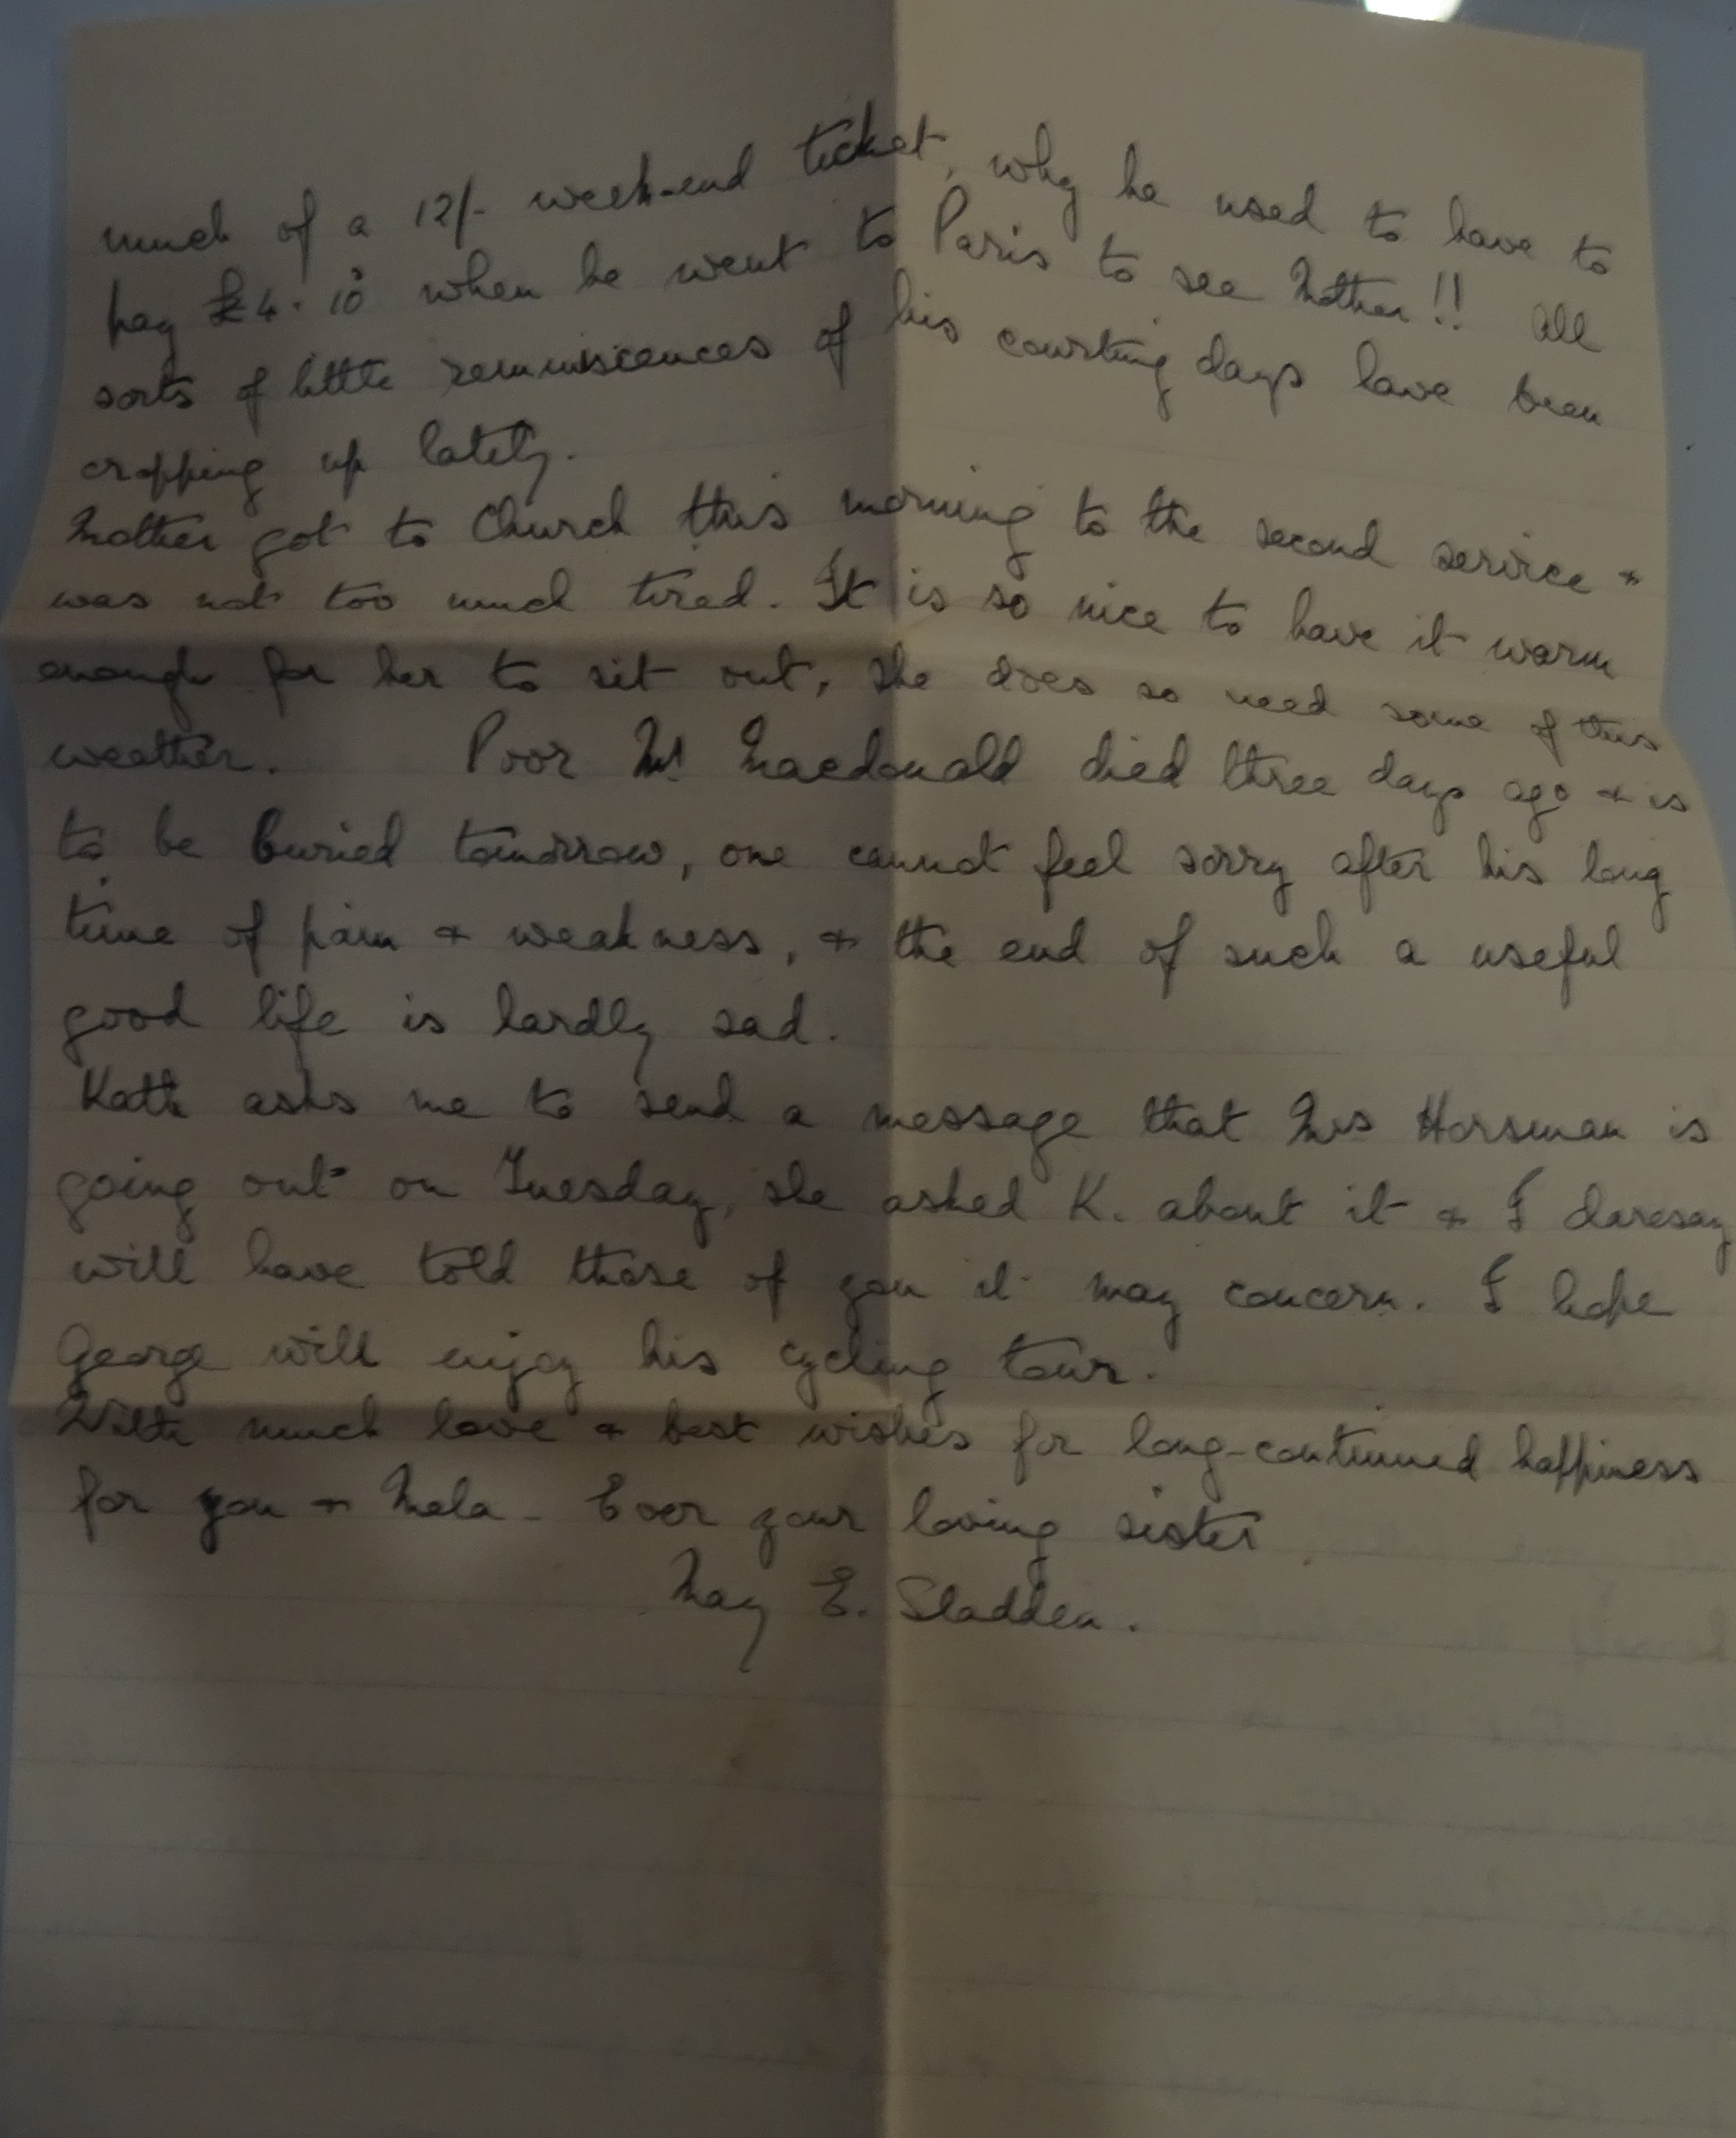 much of a 12/- week-end ticket, why he used to have to
pay £4.10 when he went to Paris to see Mother!! All
sorts of little reminiscences of his courting days have been
cropping up lately.
Mother got to Church this morning to the second service +
was not too much tired. It is so nice to have it warm
enough for her to sit out, she does so need some of this
weather. Poor Mr Macdonald died three days ago + is
to be buried tomorrow, one cannot feel sorry after his long
time of pain + weakness, + the end of such a useful
good life is hardly sad.
Kath asks me to send a message that Mrs Horsman is
going out on Tuesday, she asked K. about it + I daresay
will have told those of you it may concern. I hope
George will enjoy his cycling tour.
With much love + best wishes for long-continued happiness
for you + Mela - Ever your loving sister
May E. Sladden.